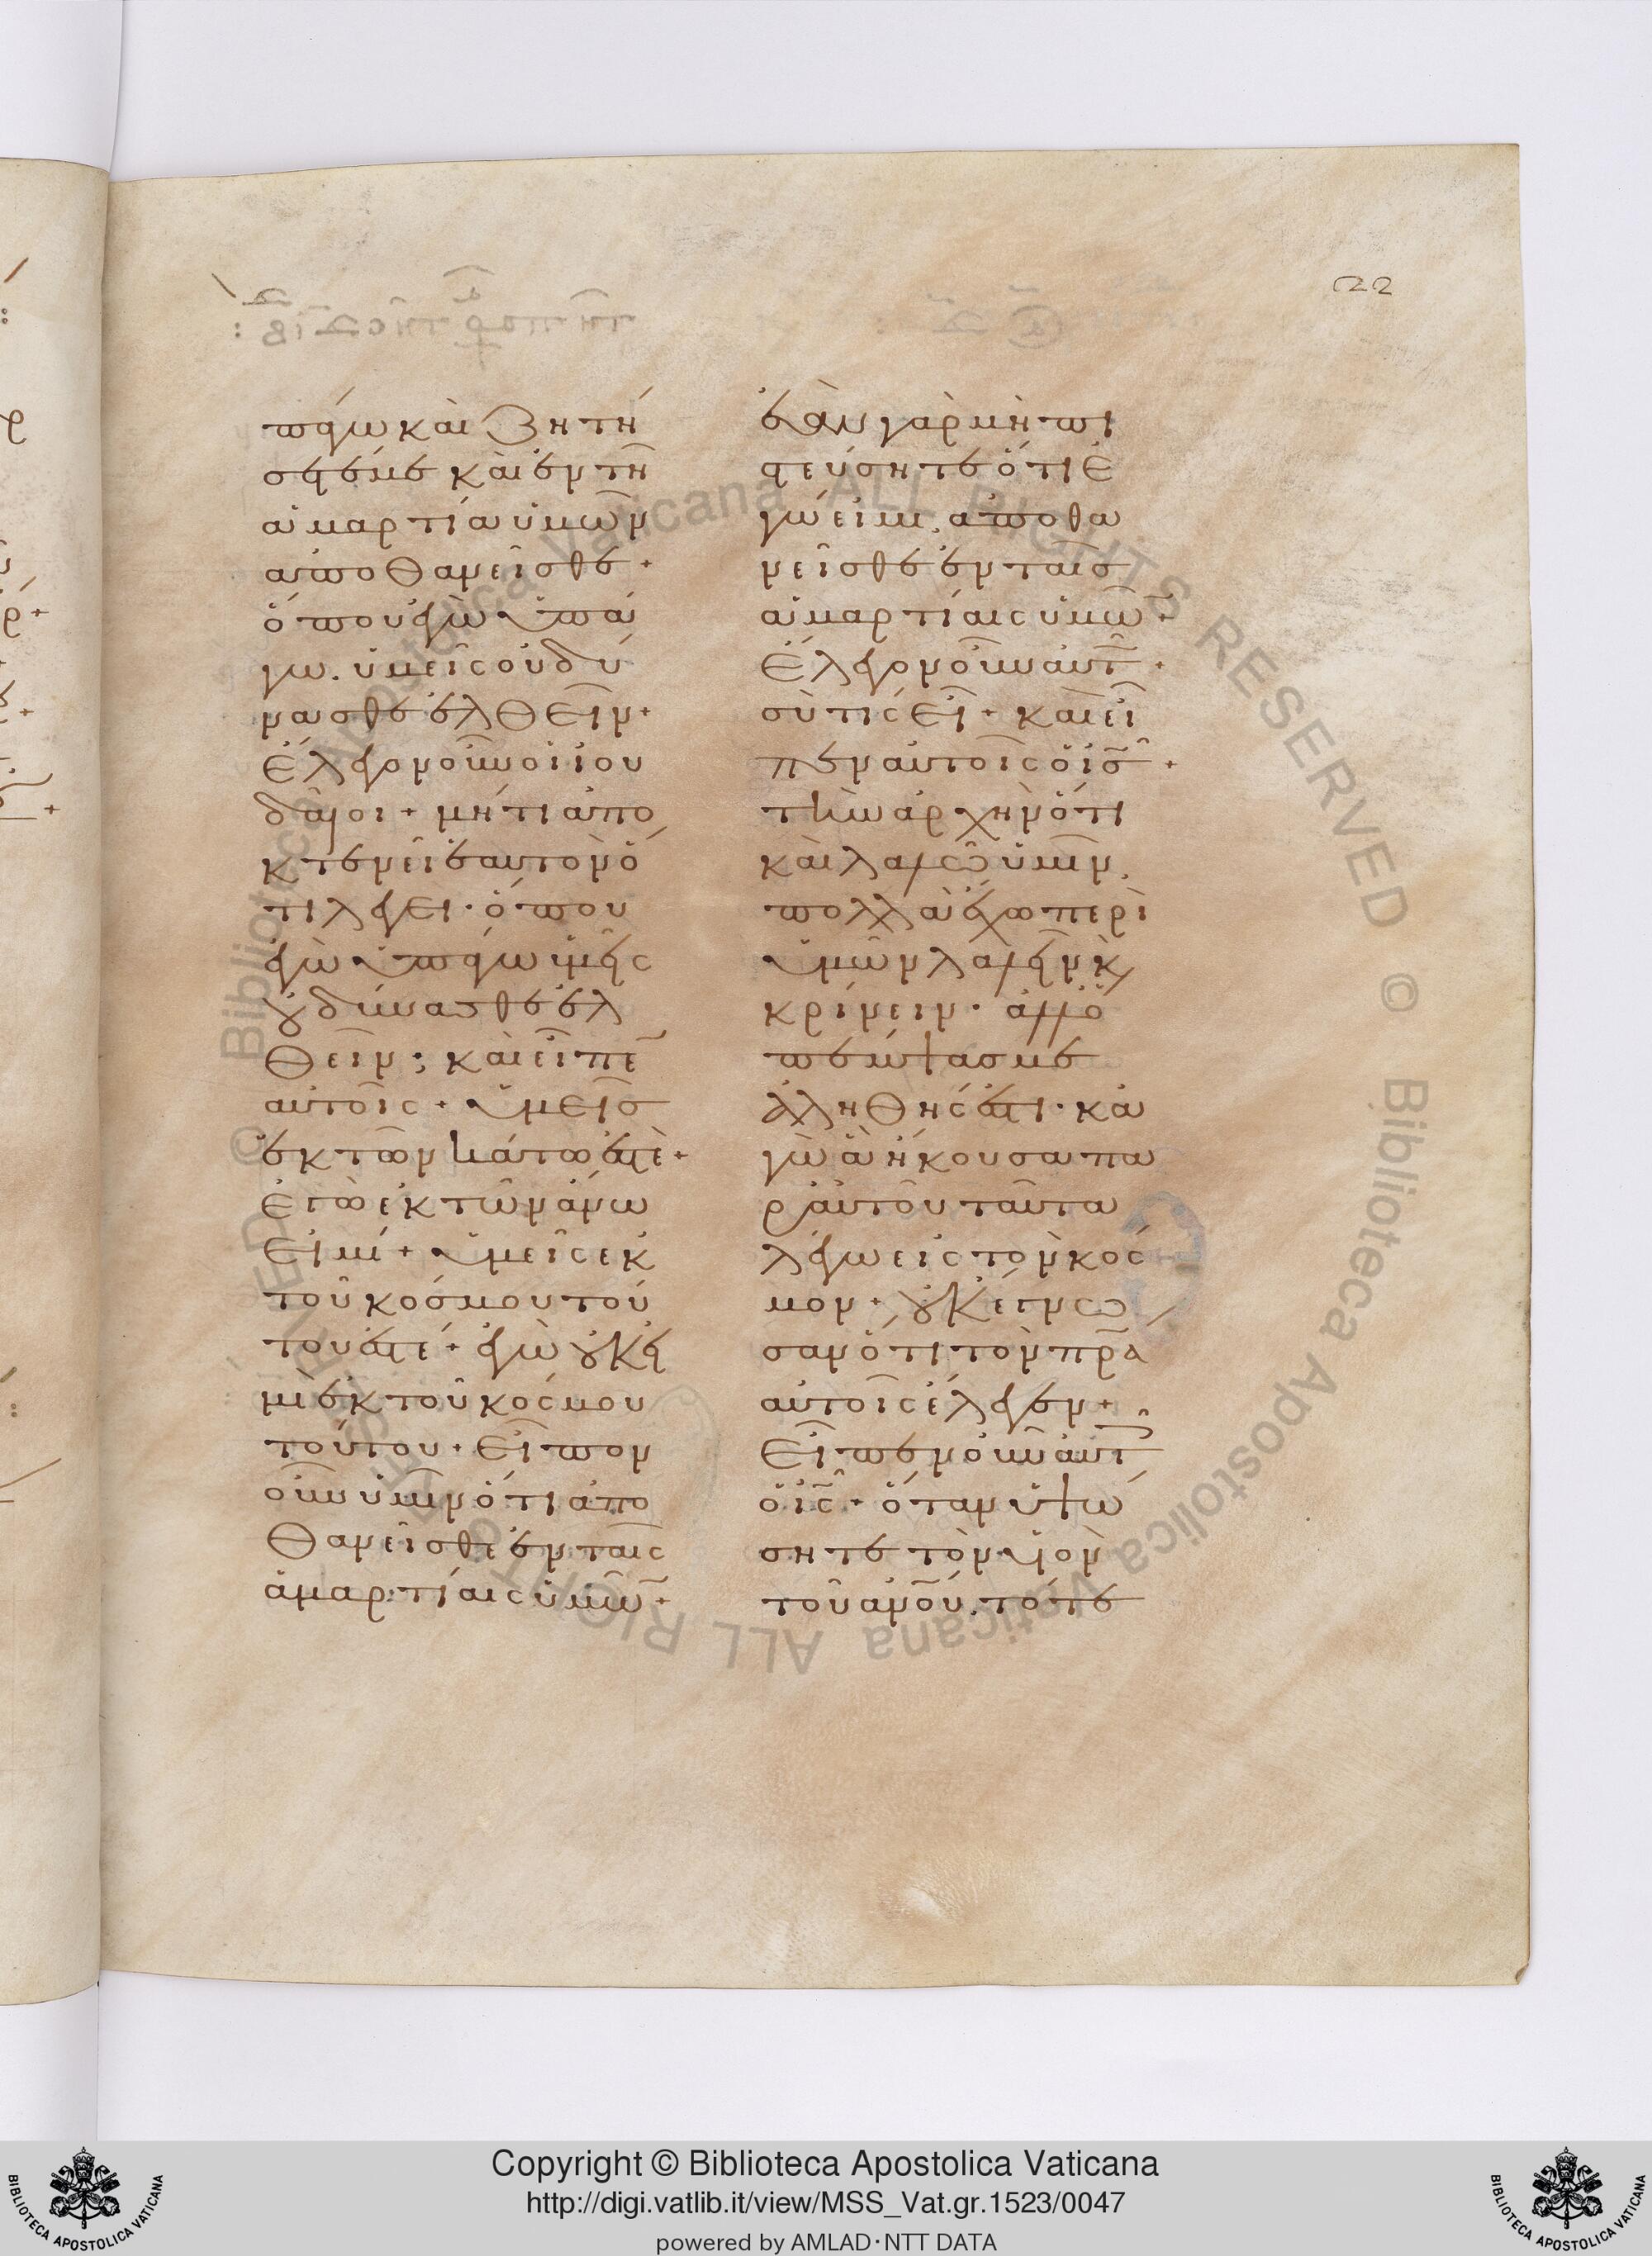 22
πάγω καὶ ζητή
σετέ με καὶ ἐν τῆ
ἁμαρτία ὑμῶν
ἀποθανεῖσθε +
ὅπου ἐγὼ ὑπά
γω. ὑμεῖς οὐ δύ
νασθε ἐλθεῖν +
ἔλεγον οὖν οἱ ἰου
δαῖοι + μήτι ἀπο
κτενεῖ ἑαυτὸν ὅ
τι λέγει · ὅπου
ἐγὼ ὑπάγω ὑμεῖς
οὐ δύνασθε ἐλ
θεῖν ; καὶ εἶπε
αὐτοῖς + ὑμεῖς
ἐκ τῶν κάτω ἐστέ +
ἐγὼ ἐκ τῶν ἄνω
εἰμί + ὑμεῖς ἐκ
τοῦ κόσμου τού
του ἐστέ + ἐγὼ οὐκ εἰ
μὶ ἐκ τοῦ κόσμου
τούτου + εἶπον
οὖν ὑμῖν ὅτι ἀπο
θανεῖσθε ἐν ταῖς
ἁμαρτίαις ὑμῶ +
ἐὰν γὰρ μὴ πι
στεύσητε ὅτι ἐ
γώ εἰμι. ἀποθα
νεῖσθε ἐν ταῖς
ἁμαρτίαις ὑμῶ +
ἔλεγον οὖν αὐτ +
σὺ τίς εἶ + καὶ εἶ
πεν αὐτοῖς ὁ ἰς +
τὴν ἀρχὴν ὅτι
καὶ λαλῶ ὑμῖν.
πολλὰ ἔχω περὶ
ὑμῶν λαλεῖν κ
κρίνειν · ἀλλ ὁ
πέμψας με
ἀληθής ἐστι · κα
γὼ ἃ ἤκουσα πα
ρ αὐτοῦ ταῦτα
λέγω εἰς τὸν κόσ
μον + οὐκ ἔγνω
σαν ὅτι τὸν πρα
αὐτοῖς ἔλεγεν +
εἶπεν οὖν αὐτ
ὁ ἰς + ὅταν ὑψώ
σητε τὸν υἱὸν
τοῦ ἀνου. τότε
Copyright © Biblioteca Apostolica Vaticana
http://digi.vatlib.it/view/MSS_Vat.gr.1523/0047
powered by AMLAD·NTT DATA